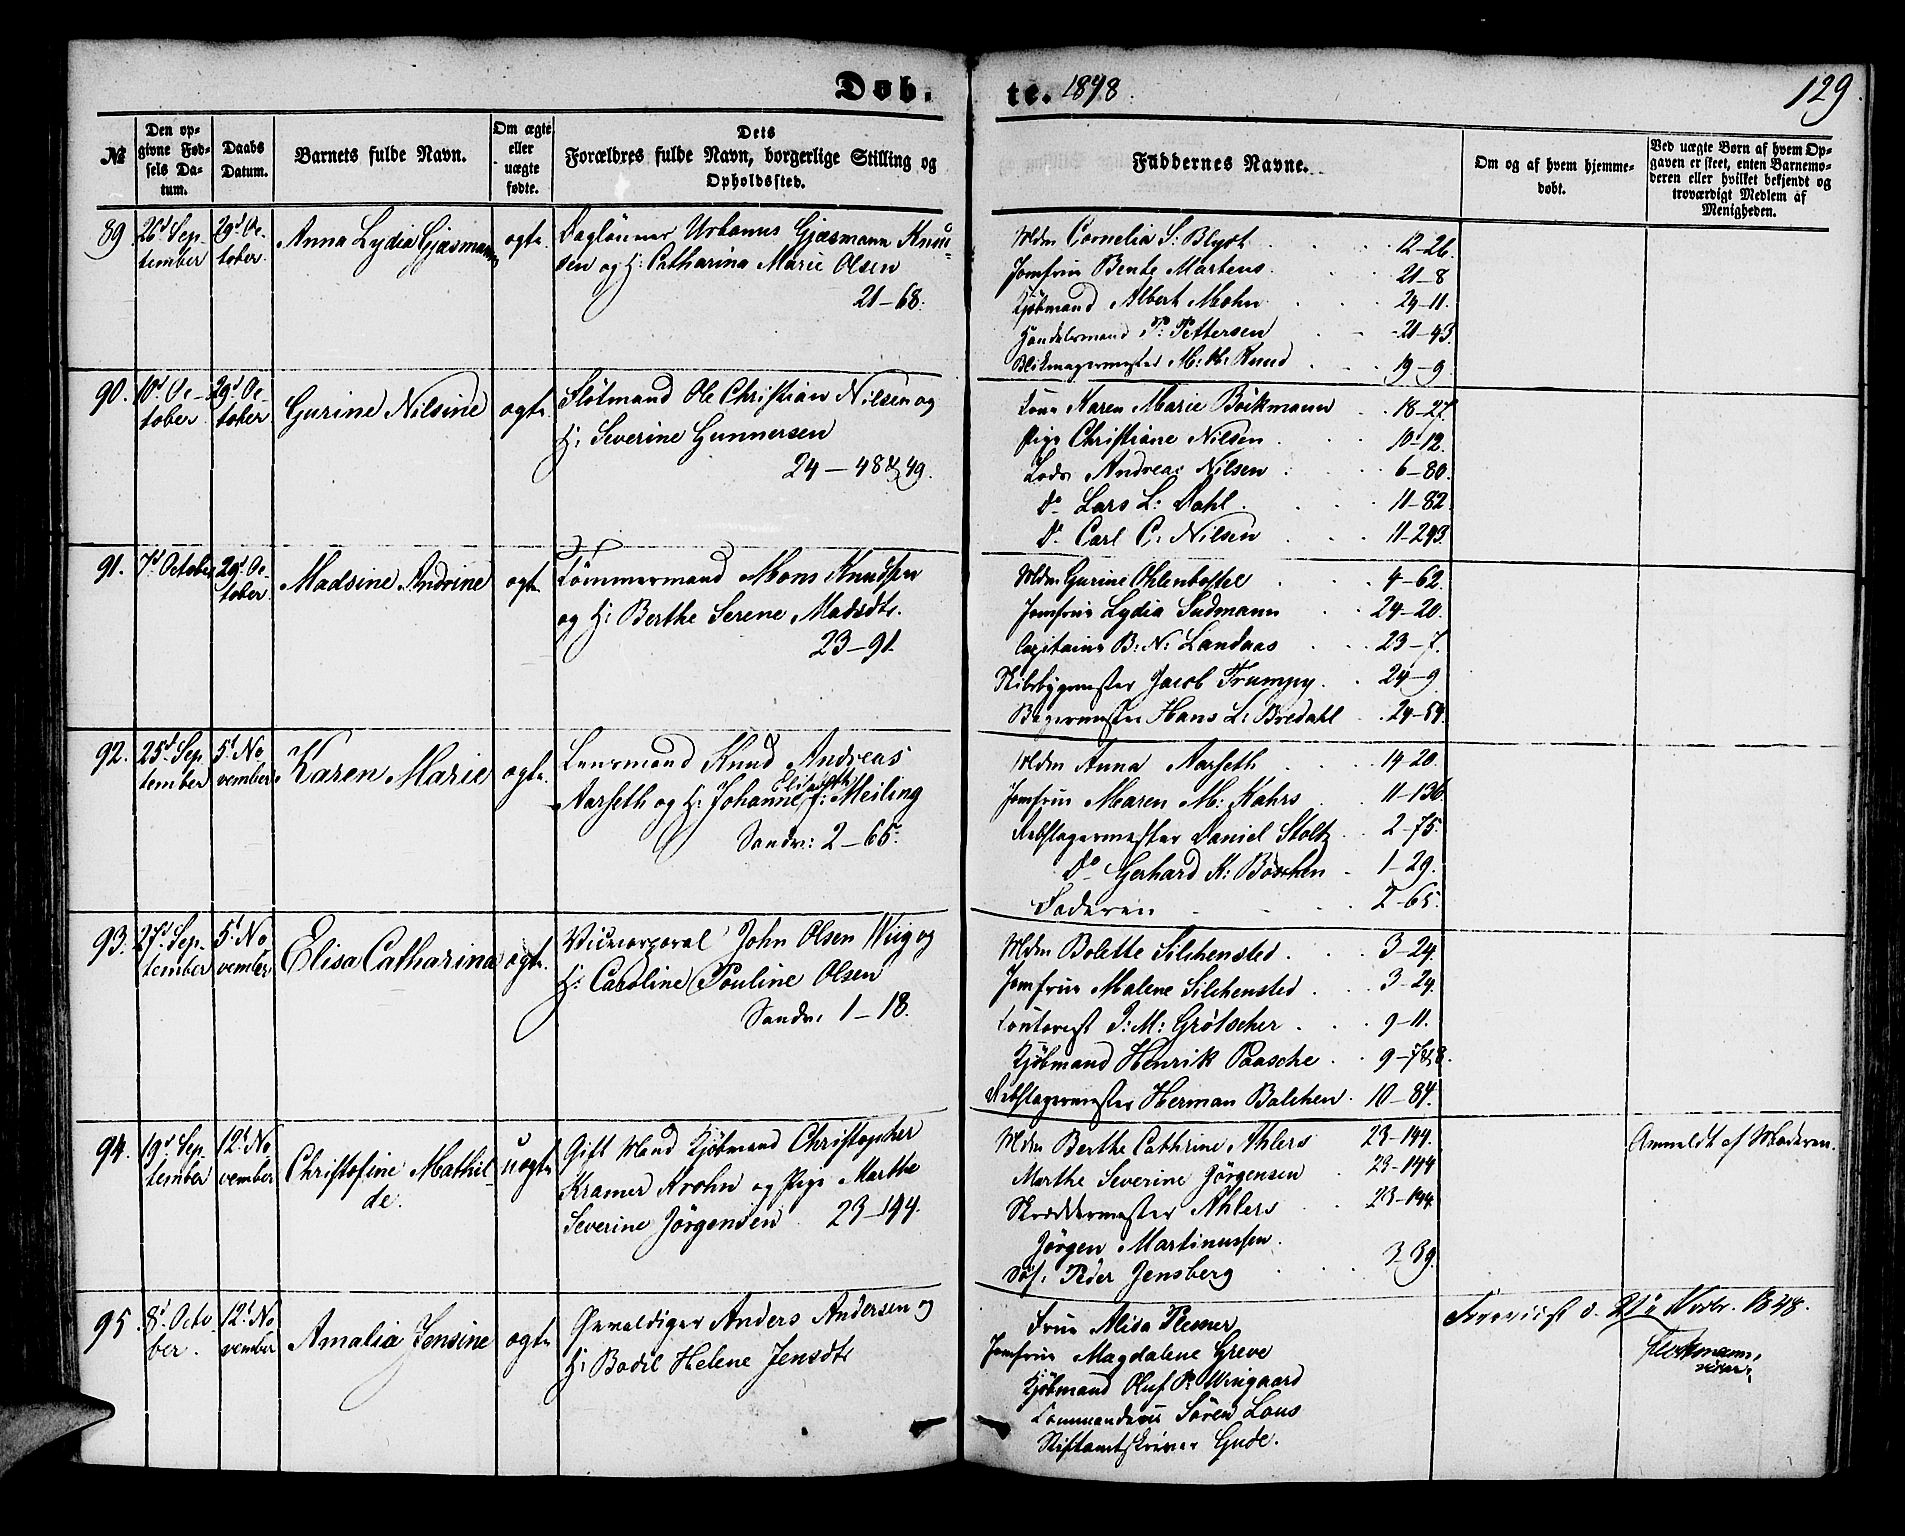 Døb.
te. 1848.
129
№
Den op-
givne Fød-
sels Da-
tum.
Daabs
Datum.
Barnets fulde Navn.
Om ægte
eller
uægte
fødte.
Dets
Forældres fulde Navn, borgerlige Stilling og
Opholdssted.
Faddernes Navne.
Om og af hvem hjemme-
døbt.
Ved uægte Børn af hvem Op-
gaven er skeet, enten Barnemo-
deren eller hvilket bekjendt og
troværdigt Medlem af
Menigheden.
89
26d Sep-
tember
29d Oc-
tober.
Anna Lydia Gjæsmann
ægte.
Daglønner Urbanus Gjæsmann Knud-
sen og H: Catharina Marie Olsen
21-68.
Mdm Cornelia S: Blydt 12-26.
Jomfrue Bente Martens. 21-8
Kjøbmand Albert Mohn 24-11.
Handelsmand P: Pettersen 21-43.
Blikmagermester 19-9
90.
10d Oc-
tober
29d Oc-
tober
Gurine Nilsine
ægte.
Ole Christian Nilsen og
H: Severine Gunnersen
24-48&49.
Kone Karen Marie Böckmann 18-27.
Pige Christiane Nilsen. 10-12.
Lods Andreas Nilsen 6-80.
Do Lars L: Dahl. 11-82
Do Carl C. Nilsen 11-293.
91.
7d October
29d Oc-
tober.
Madsine Andrine
ægte
Tømmermand Mons Knudsen
og H: Berthe Serene Madsdtr.
23-91.
Mdm Gurine Ohlenbostel 4-62.
Jomfrue Lydia Sudmann 24-20.
Capitaine B: N: Landaas 23-7.
Skibsbygmester Jacob Trumpy. 24-9
Bagermester Hans L: Bredahl 24-54.
92.
25d Sep-
tember
5t No
vember
Karen Marie
ægte.
Lensmand Knud Andreas
Elisabeth
Aarseth og H: Johanne J: Meiling
Sandv: 2-65.
Mdm Anna Aarseth 14-20.
Jomfrue Maren M: Kahrs 11-136.
Rebslagermester Daniel Stoltz 2-75.
Do Gerhard K: Böschen 1-29.
Faderen 2-65.
93.
27d Sep-
tember
5t No
vember
Elisa Catharina
ægte.
Vicecorporal John Olsen Wiig og
H: Caroline Pouline Olsen
Sandv. 1-18.
Mdm Bolette Silchensted. 3-24.
Jomfrue Malene Silchensted 3-24.
Contorist J: M: Grötscher 9-11.
Kjøbmand Henrik Paasche 9-7&8.
Rebslagermester Herman Balchen. 10-84.
94.
19d Sep-
tember
12t No-
vember
Christofine Mathil-
de.
uægte
Gift Mand Kjøbmand Christopher
Kramer Krohn og Pige Marthe
Severine Jörgensen 23-144.
Mdm Berthe Cathrine Ahlers 23-144.
Marthe Severine Jörgensen 23-144
Skræddermester Ahlers 23-144.
Jörgen Martinussen.
Peder Jensberg 3-39.
Anmeldt af Moderen.
95.
8d Octo
ber.
12t No
vember
Amalia Jensine
ægte
Gevaldiger Anders Andersen og
H: Bodil Helene Jensdtr
Frue Alida Plesner
Jomfrue Magdalene Greve
Kjøbmand Oluf P: Wingaard
Commandeur Søren Lous
Stiftamtskriver Gude.
Novbr. 1848.